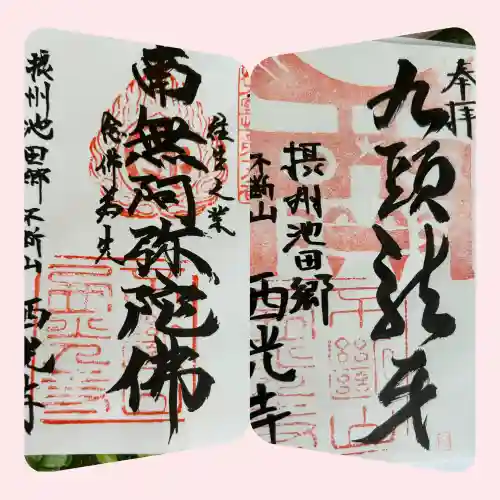 奉拝
九頭龍弁
摂州池田郷
不断山
西光寺
往生之業
南無阿弥陀佛
念佛為先
摂州池田郷不断山
西光寺